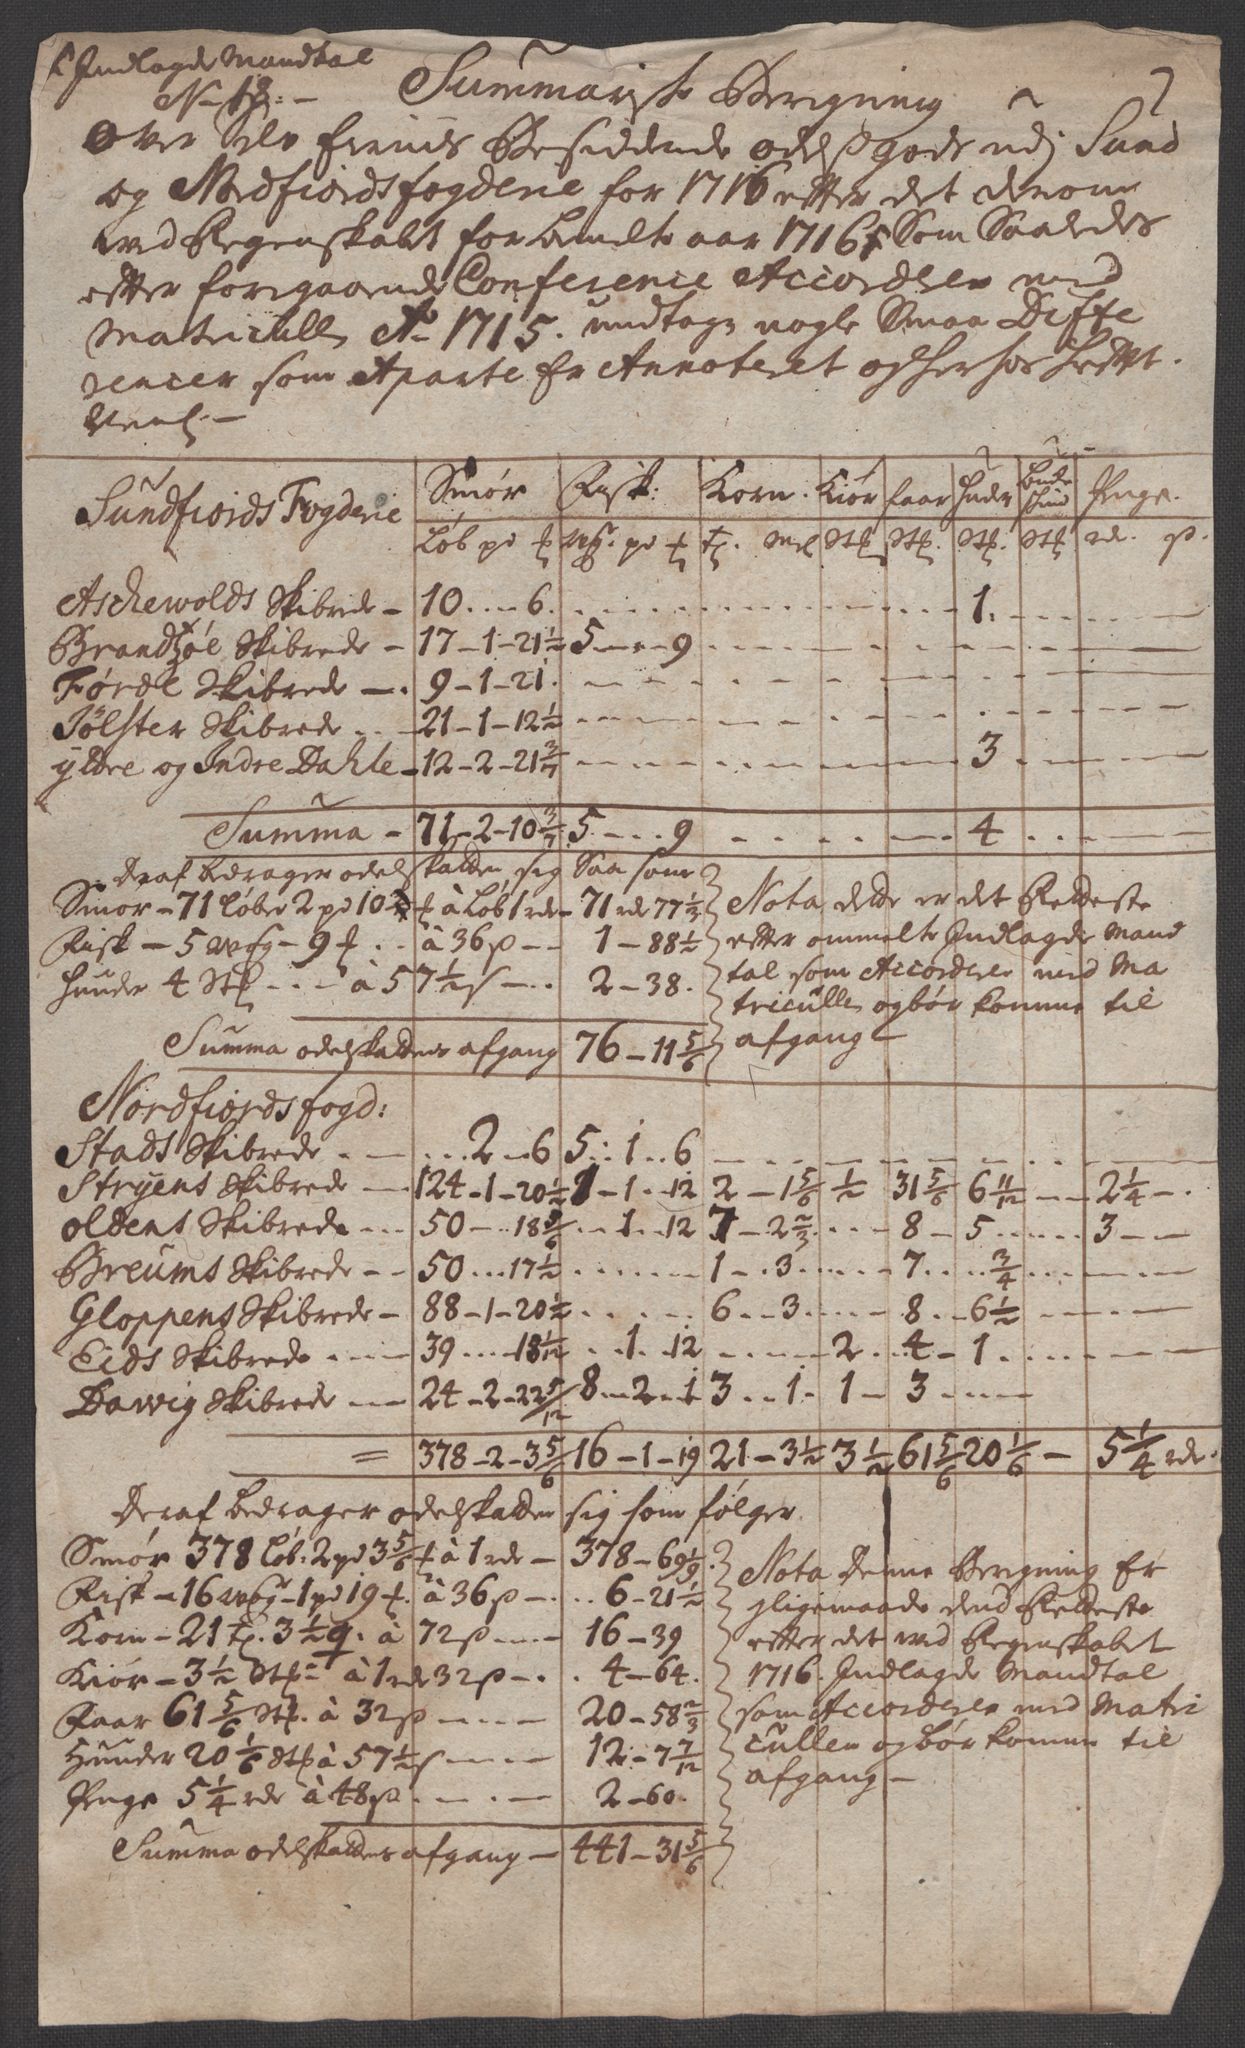 Indlagde Mandtal
No 18:
Summarisk Beregning
over Selv Eiende Besiddende odelsgods udj Sund
og Nordfiords fogderie for 1716 efter det derom
ved Regenskabet for bemelte aar 1716 Som Saaledes
efter foregaaende Conference Accorderer med
Matriculls Ao 1715. undtagn nogle Smaa Diffe
rencer som Aparte er Annoteret og
Sundfiords Fogderie Smør Fisk: Korn. Kiør faar Huder Buchskind Penge.
Løb pd # wog. pd # t. Mel Stk Stk. Stk. Stk rd. s.
Aschewolds Skibrede – 10....6. 1.
Brandzøe Skibrede – 17–1–21½ 5....9
Førde Skibrede – 9–1–21.
Jølster Skibrede 21–1–12½
ydre og Indre Dahle – 12–2–21 3/7 3
Summa – 71–2–10 3/7 5....9 4
Deraf bedrager odelskatten sig Saa som
Smør – 71 løber 2 pd 10 # à Løb 1 rd – 71 rd 77⅓
Fisk – 5 wog – 9 # .. à 36 s – – 1 – 88½
Huuder 4 Stk – – – à 57½ s – .. 2 – 38.
Summa odelskattens afgang 76 – 11 5/6
Nota dette er det Retteste
efter ommelte Indlagde Mand
tal som Accorderer med Ma
triculln og bør komme til
afgang –
Nordfiords fogd:
Stads Skibrede . – ...2–6 5..1..6
Stryens Skibrede – 124–1–20½ 1–1..12 2–1 5/6 ½ 31 5/6 6 11/12 – – 2¼ – .
oldens Skibrede ... 50–..18 5/6 ..1..12 7–2⅔ 8 – 5 3 – –
Breums Skibrede – – 50...17½ 1–.3 7 ¾
Gloppens Skibrede – 88–1–20½ 6..3 8..6½
Eids Skibrede .... 39....18 1/12 ..1..12 2..4–1
Dawig Skibrede – – 24–2–22 5/12 8..2..1 3..1. 1 – 3
= 378–2–3 5/6 16–1–19 21–3½ 3½ 61 5/6 20 1/6 – 5¼ rd.
Deraf bedrager odelskatten sig som følger
Smør 378 løb. 2 pd 3 5/6 # à 1 rd – 378 – 69 1/9
Fisk – 16 wog – 1 pd 19 #. à 36 s – .. 6 – 21½
Korn – 21 t. 3½ q. à 72 s – – 16 – 39
Kiør – 3½ Stk – à 1 rd 32 s – . . 4 – 64.
Faar 61 5/6 Stk. à 32 s – – – 20 – 58⅔
Huuder 20 1/6 Stk à 57½ s – – – 12 – 7 7/12
Penge 5¼ rd à 48 s . – . – 2 – 60.
Summa odelskattens afgang – 441 – 31 5/6
Nota Denne Beregning Er
ligemaade dend Retteste
efter det ved Regenskabet
1716. Indlagde Mandtal
som Accorderer med Matri
cullen og bør komme til
afgang –